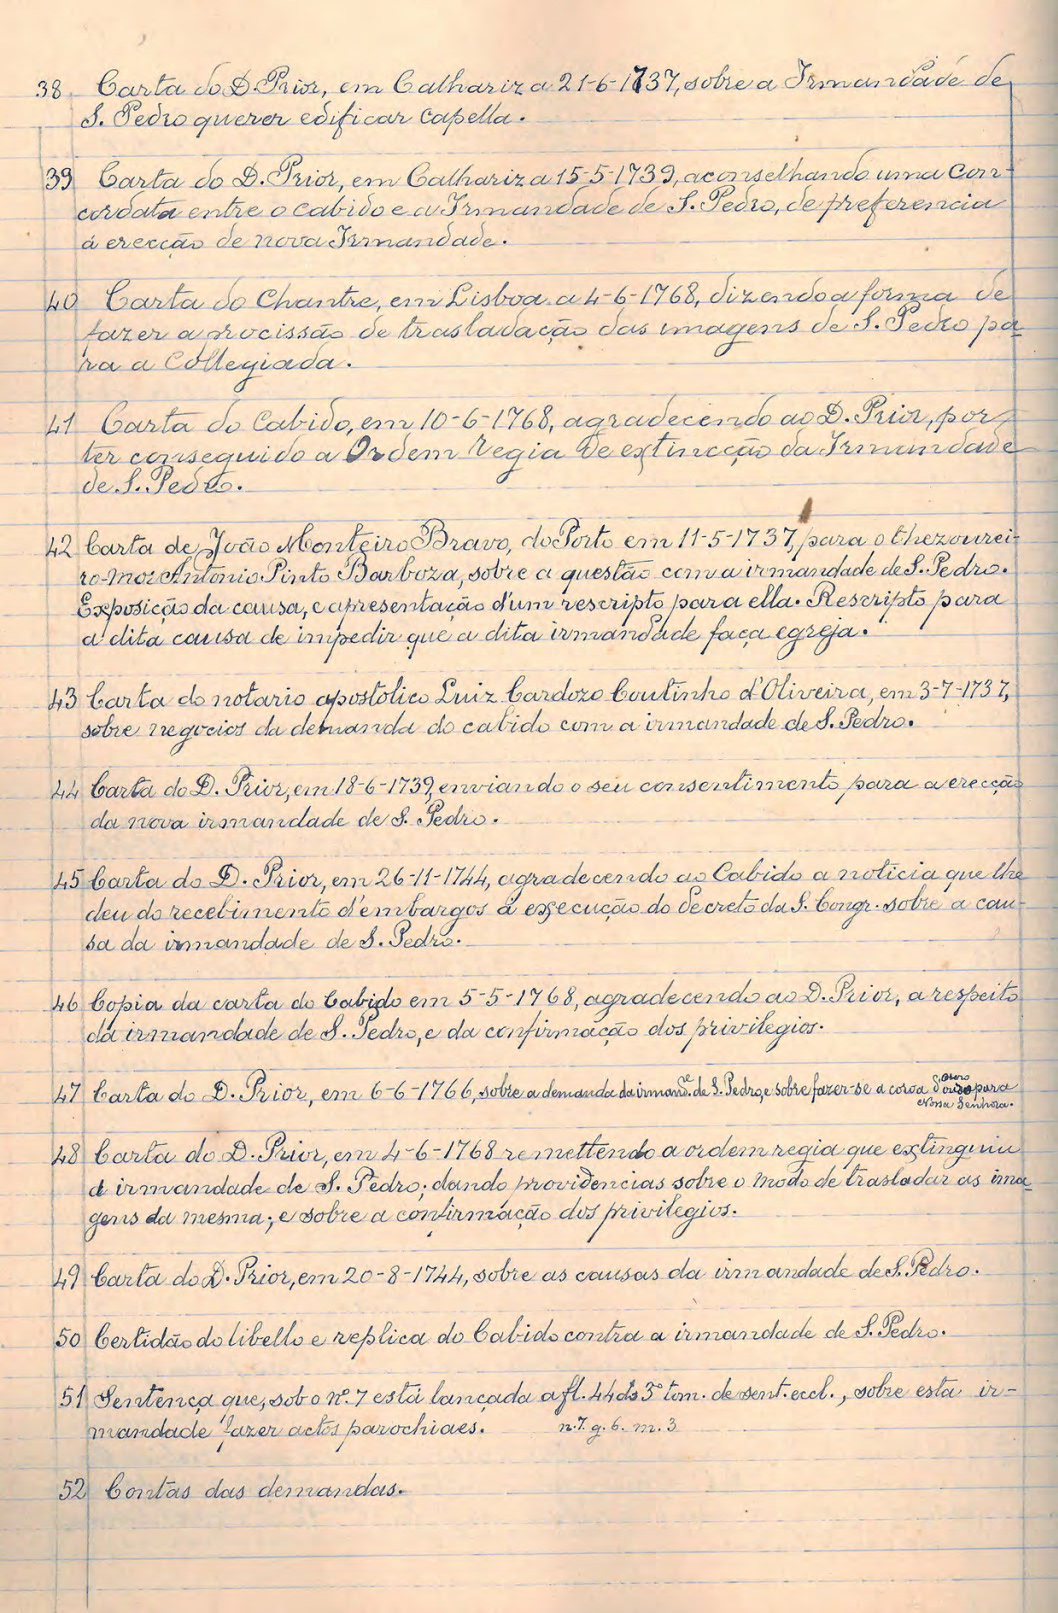 38 Carta do D. Prior, em Calhariz a 21-6-1737, sobre a Irmandade de
S. Pedro querer edificar capella.
39 Carta do D. Prior, em Calhariz a 15-5-1739, aconselhando uma con-
cordata entre o cabido e a Irmandade de S. Pedro, de preferencia
á erecção de nova Irmandade.
40 Carta do Chantre, em Lisboa a 4-6-1768, dizendo a forma de
fazer a procissão de trasladação das imagens de S. Pedro pa-
ra a Collegiada.
41 Carta do Cabido, em 10-6-1768, agradecendo ao D. Prior, por
ter conseguido a Ordem Regia de extincção da Irmandade
de S. Pedro.
42 Carta de João Monteiro Bravo, do Porto em 11-5-1737, para o thezourei-
ro-mor Antonio Pinto Barboza, sobre a questão com a irmandade de S. Pedro.
Exposição da causa, e apresentação d'um rescripto para ella. Rescripto para
a dita causa de impedir que a dita irmandade faça egreja.
43 Carta do notario apostolico Luiz Cardozo Coutinho d'Oliveira, em 3-7-1737,
sobre negocios da demanda do cabido com a irmandade de S. Pedro.
44 Carta do D. Prior, em 18-6-1739, enviando o seu consentimento para a erecção
da nova irmandade de S. Pedro.
45 Carta do D. Prior, em 26-11-1744, agradecendo ao Cabido a noticia que lhe
deu do recebimento d'embargos á execução do decreto da S. Congr. sobre a cau-
sa da irmandade de S. Pedro.
46 Copia da carta do Cabido em 5-5-1768, agradecendo ao D. Prior, a respeito
da irmandade de S. Pedro, e da confirmação dos privilegios.
47 Carta do D. Prior, em 6-6-1766, sobre a demanda da irmand.e de S. Pedro, e sobre fazer-se a coroa d'ouro para
Nossa Senhora.
48 Carta do D. Prior, em 4-6-1768 remettendo a ordem regia que extinguiu
a irmandade de S. Pedro; dando providencias sobre o modo de trasladar as ima-
gens da mesma; e sobre a confirmação dos privilegios.
49 Carta do D. Prior, em 20-8-1744, sobre as causas da irmandade de S. Pedro.
50 Certidão do libello e replica do Cabido contra a irmandade de S. Pedro.
51 Sentença que, sob o nº. 7 está lançada a fl. 44 do 3º tom. de sent. eccl., sobre esta ir-
mandade fazer actos parochiaes. n. 7. g. 6. m. 3
52 Contas das demandas.